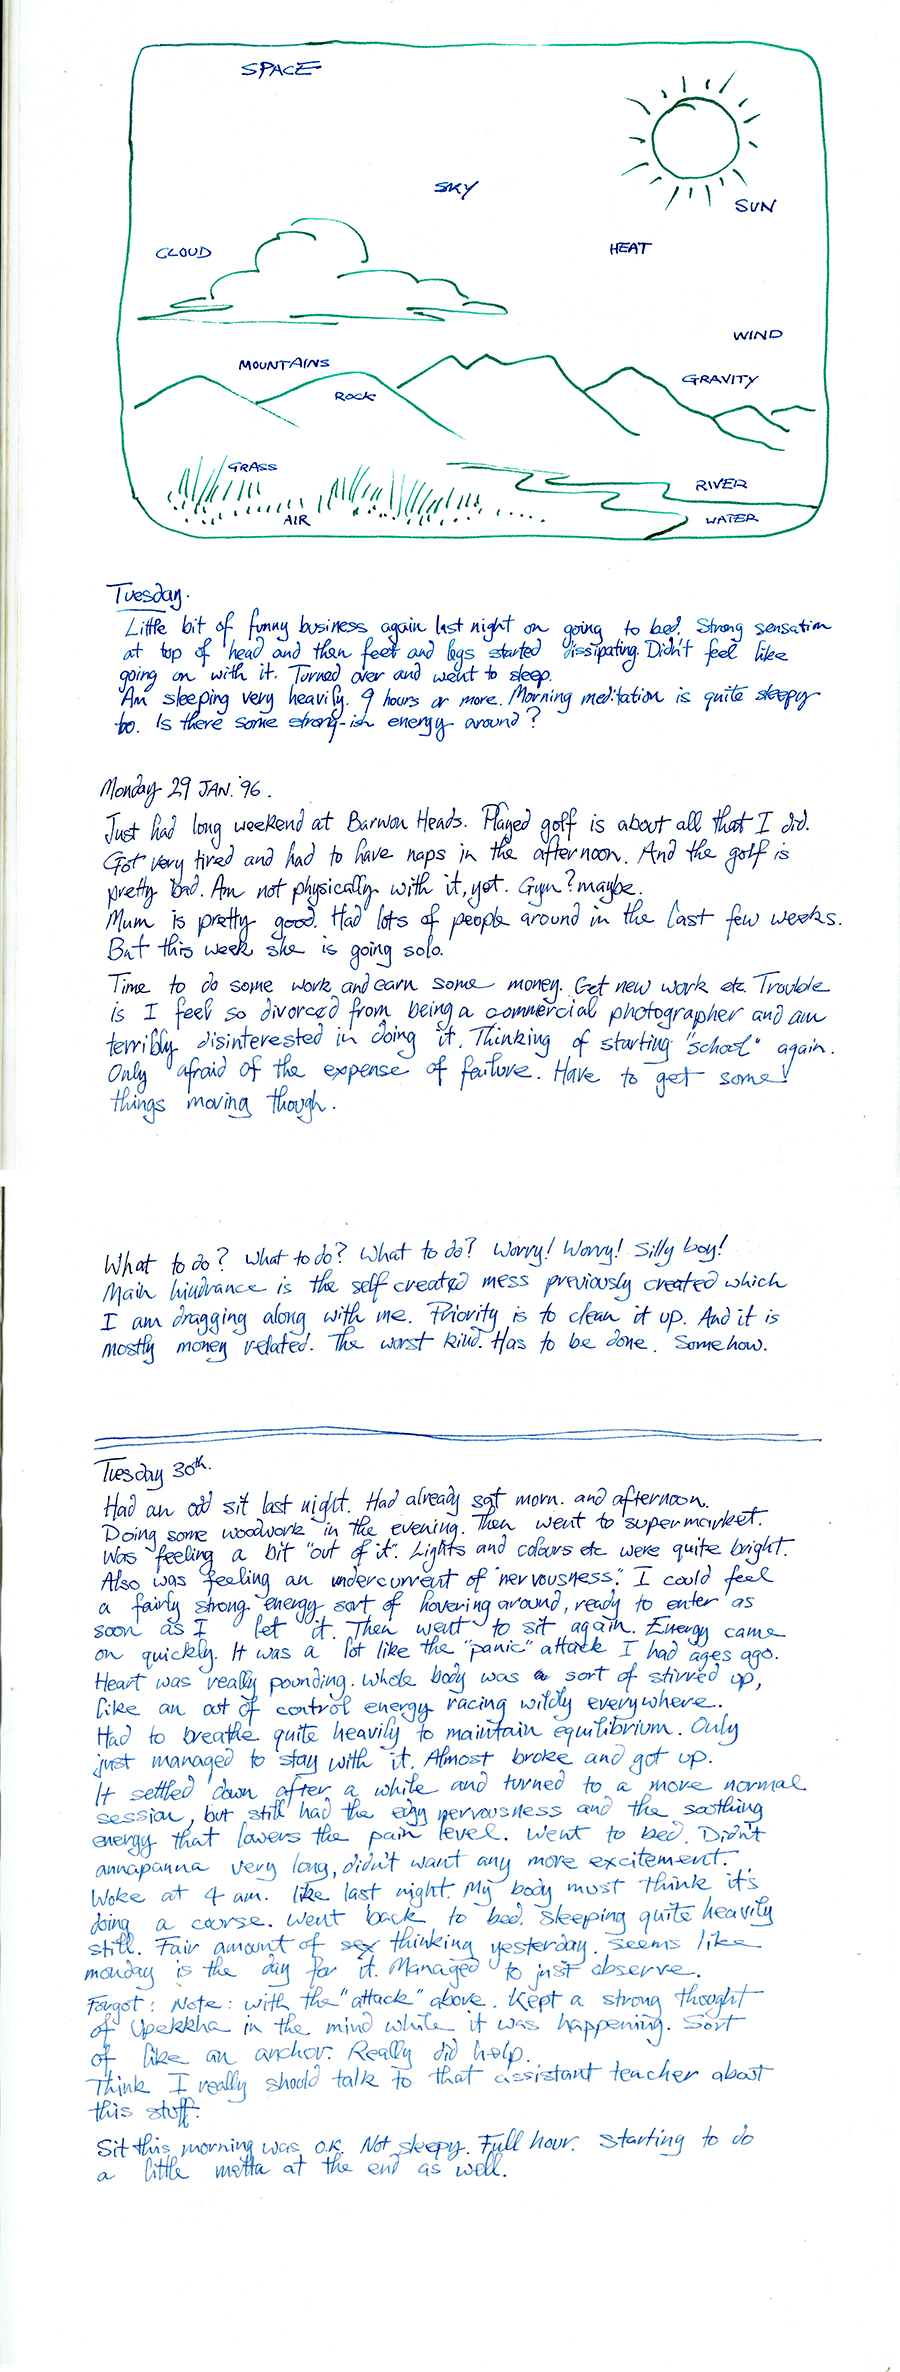 SPACE
SKY
SUN
CLOUD
HEAT
WIND
MOUNTAINS
GRAVITY
ROCK
GRASS
RIVER
AIR
WATER
Tuesday.
Little bit of funny business again last night on going to bed. Strong sensation
at top of head and then feet and legs started dissipating. Didn't feel like
going on with it. Turned over and went to sleep.
Am sleeping very heavily. 9 hours or more. Morning meditation is quite sleepy
too. Is there some strong-ish energy around?
Monday 29 JAN. '96.
Just had long weekend at Barwon Heads. Played golf is about all that I did.
Got very tired and had to have naps in the afternoon. And the golf is
pretty bad. Am not physically with it, yet. Gym? maybe.
Mum is pretty good. Had lots of people around in the last few weeks.
But this week she is going solo.
Time to do some work and earn some money. Get new work etc. Trouble
is I feel so divorced from being a commercial photographer and am
terribly disinterested in doing it. Thinking of starting "school" again.
Only afraid of the expense of failure. Have to get some
things moving though.
What to do? What to do? What to do? Worry! Worry! Silly boy!
Main hindrance is the self created mess previously created which
I am dragging along with me. Priority is to clean it up. And it is
mostly money related. The worst kind. Has to be done. Somehow.
Tuesday 30th.
Had an odd sit last night. Had already sat morn. and afternoon.
Doing some woodwork in the evening. Then went to supermarket.
Was feeling a bit "out of it". Lights and colours etc were quite bright.
Also was feeling an undercurrent of "nervousness". I could feel
a fairly strong energy sort of hovering around, ready to enter as
soon as I let it. Then went to sit again. Energy came
on quickly. It was a lot like the "panic" attack I had ages ago.
Heart was really pounding. Whole body was a sort of stirred up,
like an out of control energy racing wildly everywhere.
Had to breathe quite heavily to maintain equilibrium. Only
just managed to stay with it. Almost broke and got up.
It settled down after a while and turned to a more normal
session, but still had the edgy nervousness and the soothing
energy that lowers the pain level. Went to bed. Didn't
annapanna very long, didn't want any more excitement.
Woke at 4 am. like last night. My body must think it's
doing a course. Went back to bed. Sleeping quite heavily
still. Fair amount of sex thinking yesterday. Seems like
monday is the day for it. Managed to just observe.
Forgot: Note: with the "attack" above. Kept a strong thought
of Upekkha in the mind while it was happening. Sort
of like an anchor. Really did help.
Think I really should talk to that assistant teacher about
this stuff.
Sit this morning was o.k. Not sleepy. Full hour. Starting to do
a little metta at the end as well.